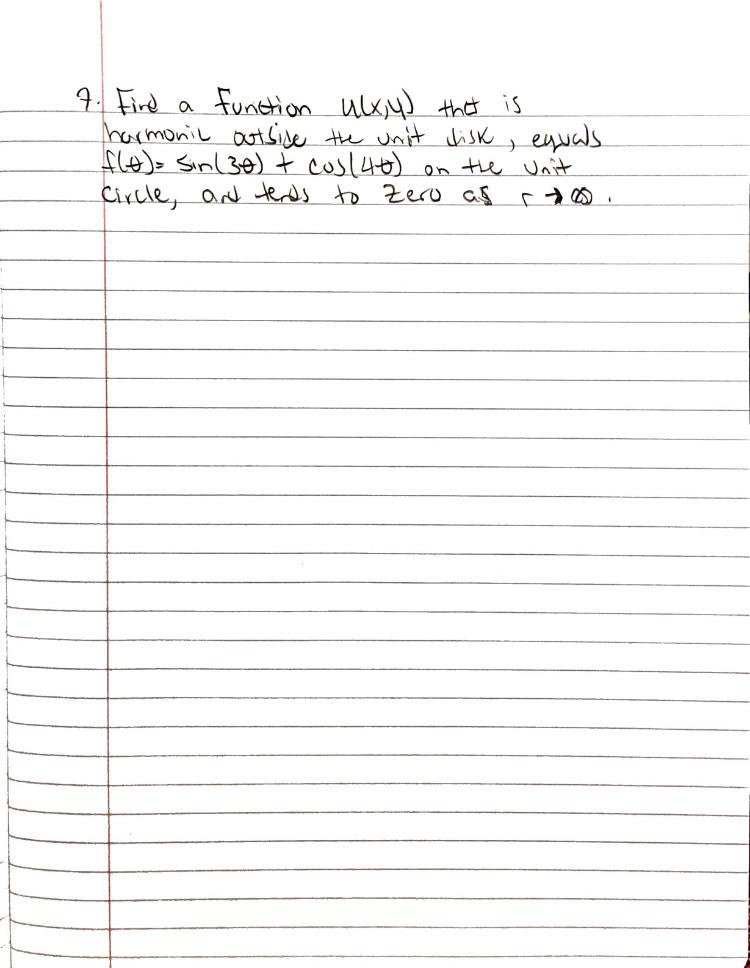 7. Find a function u(x,y) that is
harmonic outside the unit disk, equals
f(θ)= sin(3θ) + cos(4θ) on the unit
circle, and tends to zero as r → ∞.